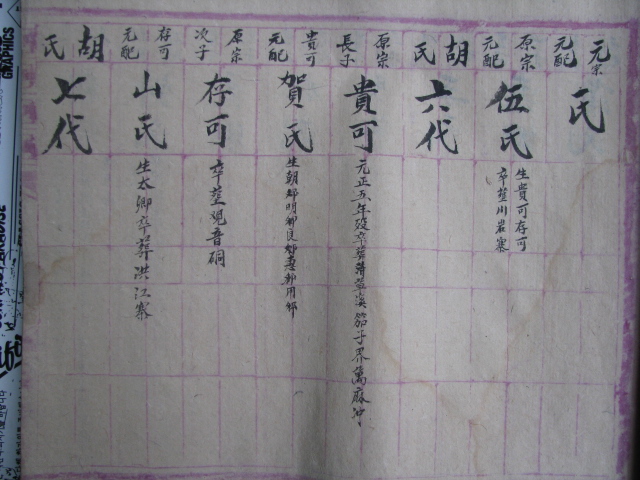 元宗
元配
氏
原宗
元配
伍氏
生貴可存可
卒塟川岩寨
胡氏
六代
原宗
長子
貴可
元正五年歿卒葬
笳子界萬麻冲
貴可
元配
賀氏
生朝卿明卿良卿惠卿用卿
原宗
次子
存可
卒塟观音硐
存可
元配
山氏
生太卿卒葬洪江寨
胡氏
七代